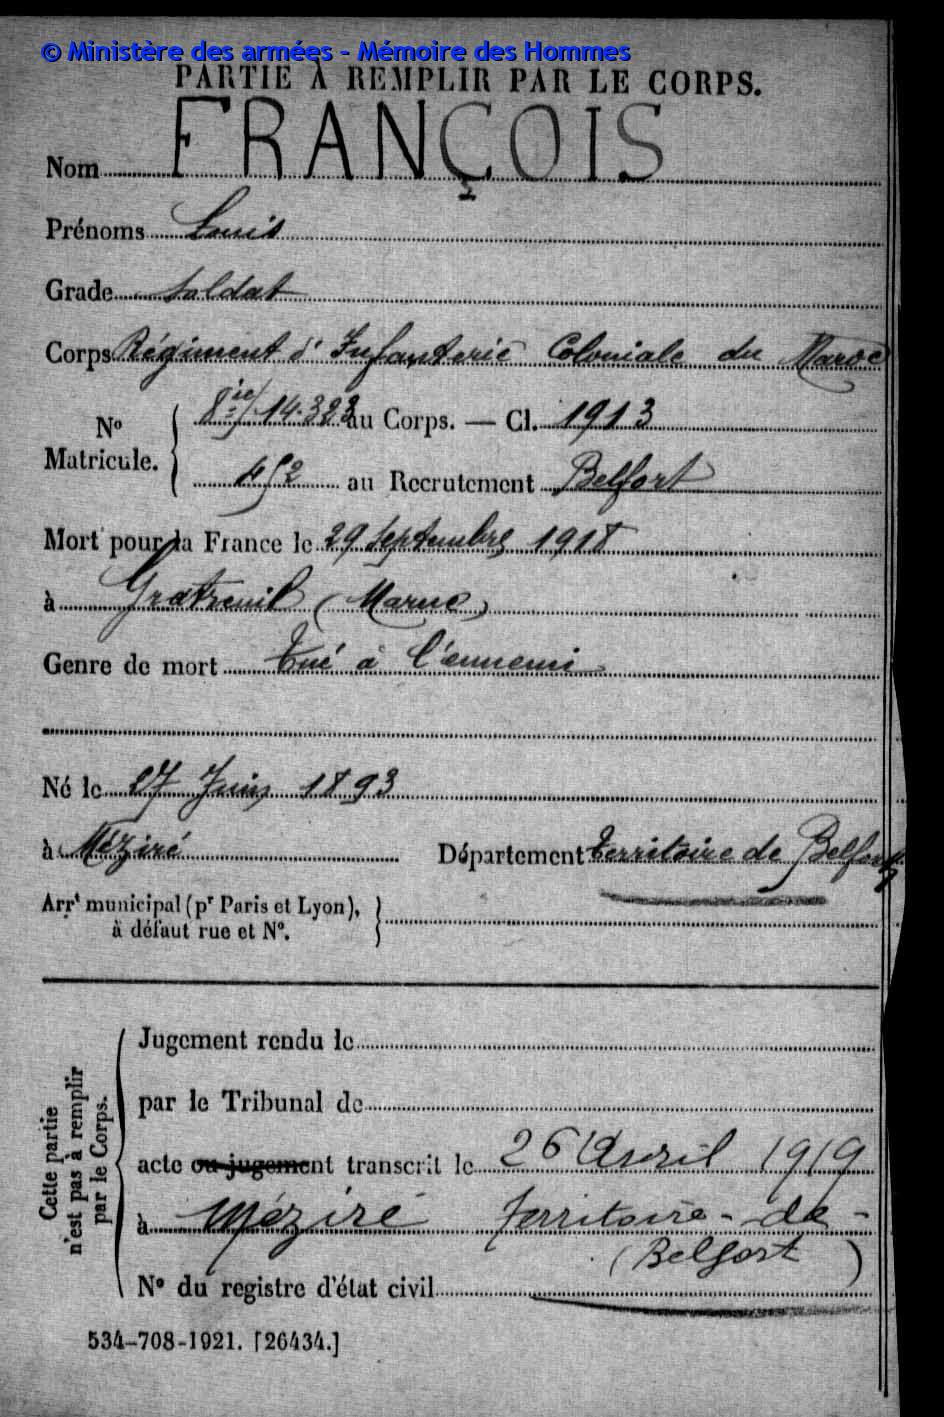 © Ministère des armées - Mémoire des Hommes
PARTIE À REMPLIR PAR LE CORPS.
Nom FRANÇOIS
Prénoms Louis
Grade Soldat
Corps Régiment d'Infanterie Coloniale du Maroc
N° Matricule. 8ie/14.323 au Corps. — Cl. 1913
452 au Recrutement Belfort
Mort pour la France le 29 Septembre 1918
à Gratreuil (Marne)
Genre de mort Tué à l'ennemi
Né le 27 Juin 1893
à Méziré Département territoire de Belfort
Arrt municipal (pr Paris et Lyon), à défaut rue et N°.
Cette partie n'est pas à remplir par le Corps.
Jugement rendu le
par le Tribunal de
acte ou jugement transcrit le 26 Avril 1919
à Méziré Territoire-de-
(Belfort)
N° du registre d'état civil
534-708-1921. [26434.]